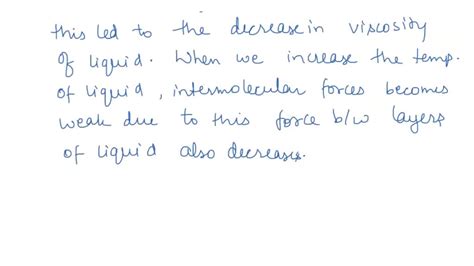 this led to the decrease in viscosity
of liquid. When we increase the temp.
of liquid, intermolecular forces becomes
weak due to this force b/w layers
of liquid also decreases.